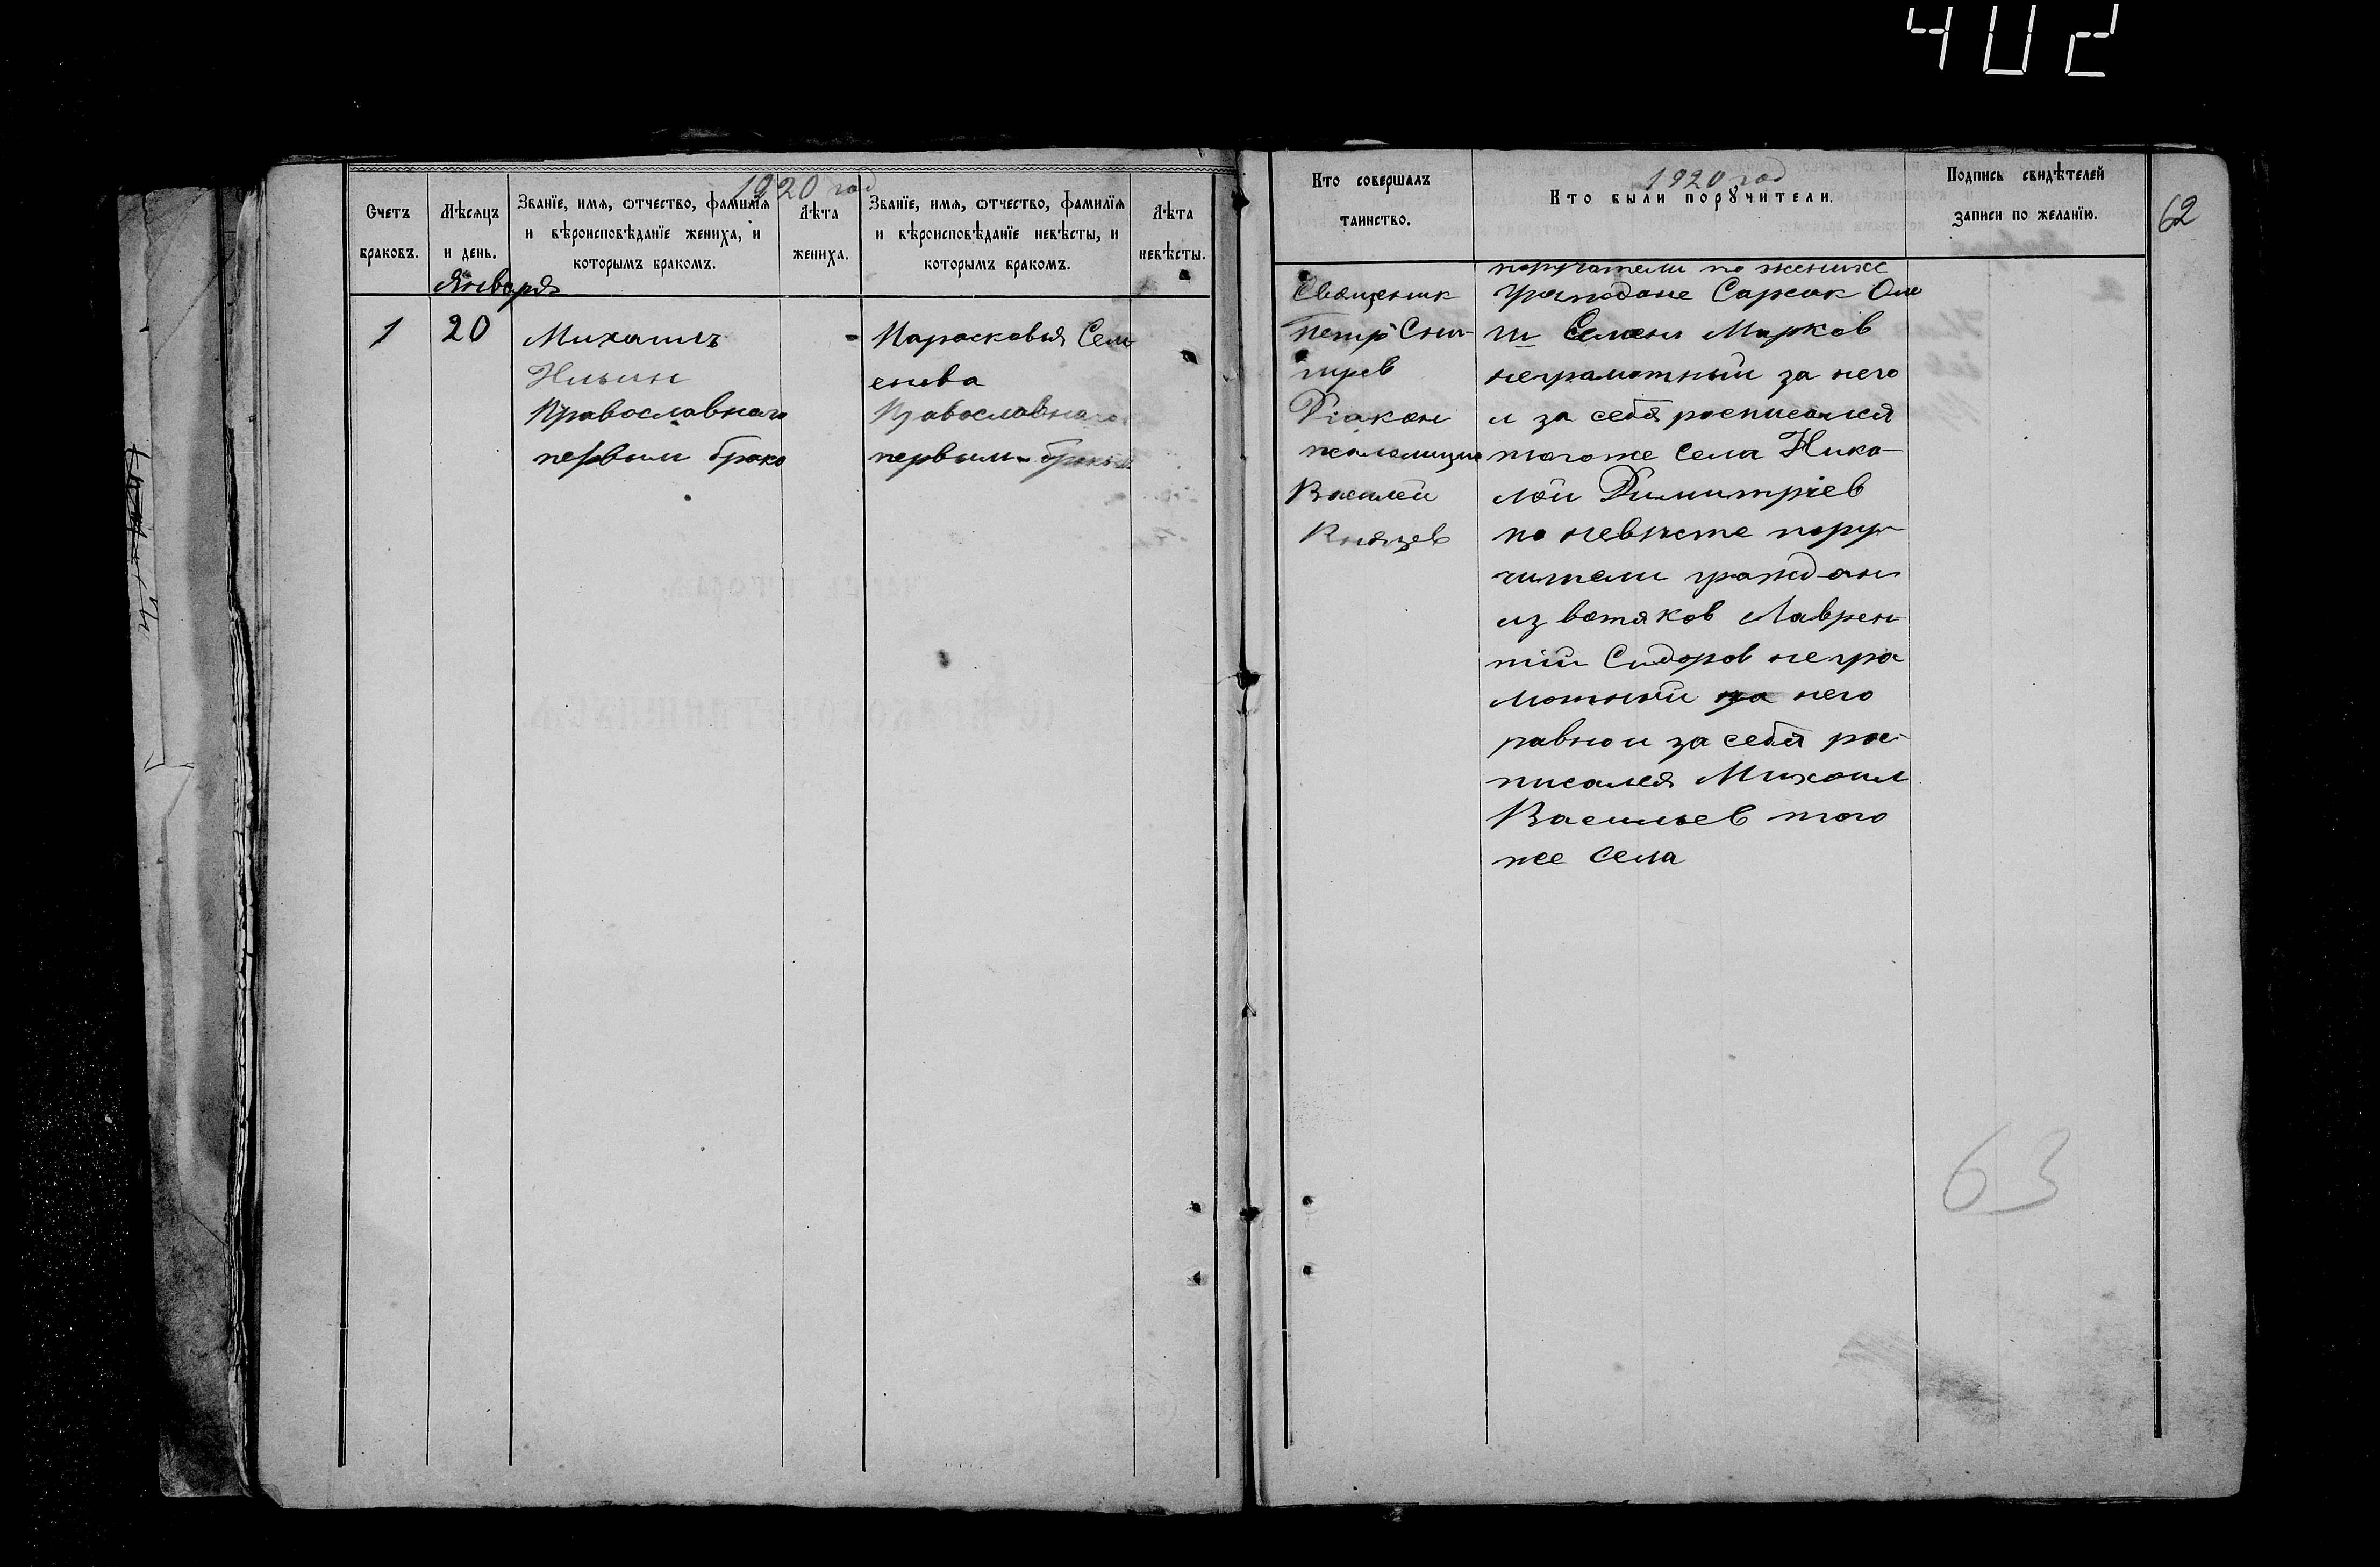 402
1920 год
Счетъ браковъ.
Мѣсяцъ и день.
Званїе, имѧ, ѿтчество, фамилїѧ
и вѣроисповѣданїе жениха, и
которымъ бракомъ.
Лѣта жениха.
Званїе, имѧ, ѿтчество, фамилїѧ
и вѣроисповѣданїе невѣсты, и
которымъ бракомъ.
Лѣта невѣсты.
Января
1
20
Михаилъ
Ильин
Православнаго
первым брако
Парасковья Сем
енева
Православнаго
первым браком
1920 год
Кто совершалъ
таинство.
Кто были порꙋчители.
Подпись свидѣтелей
записи по желанїю.
62
Священик
Петр Сни-
гирев
Діакон
псаломщик
Василей
Князев
поручители по женихе
граждане Сарсак Ом
ги Семен Марков
неграмотный за него
и за себя росписался
тогоже села Нико-
лай Димитріев
по невесте пору-
чители граждан
из вотяков Лаврен
тий Сидоров негра
мотный за него
равно и за себя рос-
писался Михаил
Васильев того
же села
63